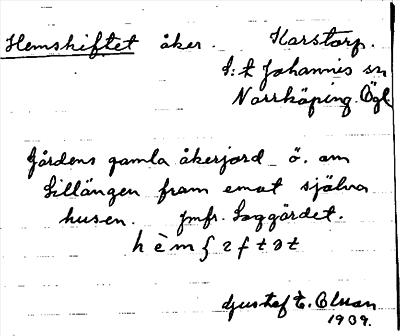 Hemskiftet åker. Karstorp.
S:t Johannis sn
Norrköping. Ögl.
Gårdens gamla åkerjord ö. om
Lillängen fram emot själva
husen. Jmfr. Loggärdet.
hèmʃɛftət
Gustaf E. Olsson
1939.